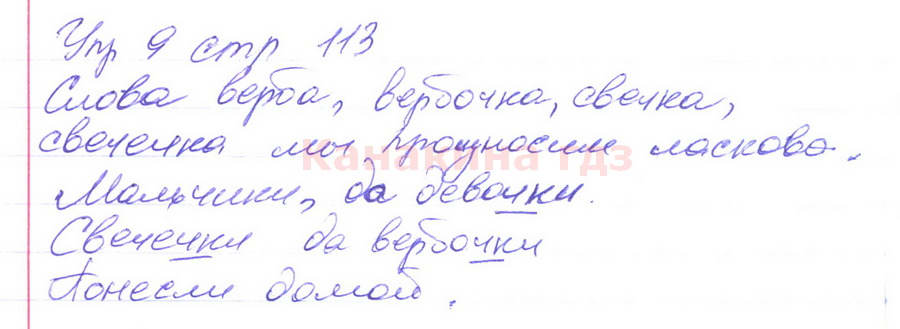 Упр 9 стр 113
Слова верба, вербочка, свечка,
свечечка мы произносим ласково.
Канакина гдз
Мальчики, да девочки.
Свечечки да вербочки
Понесли домой.